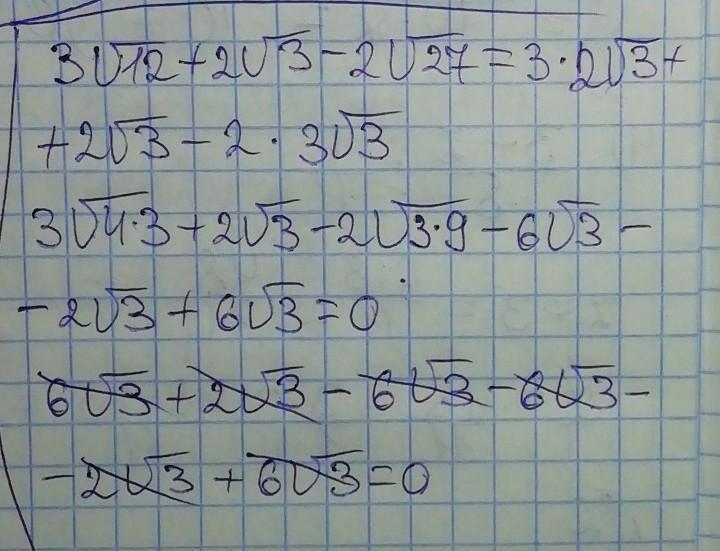 3√12 + 2√3 - 2√27 = 3·2√3 +
+ 2√3 - 2·3√3
3√4·3 + 2√3 - 2√3·9 - 6√3 -
- 2√3 + 6√3 = 0
6√3 + 2√3 - 6√3 - 6√3 -
- 2√3 + 6√3 = 0